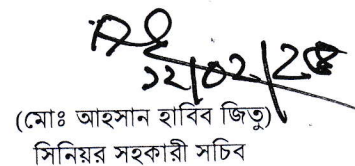 ১২/০২/২৪
(মোঃ আহসান হাবিব জিতু)
সিনিয়র সহকারী সচিব